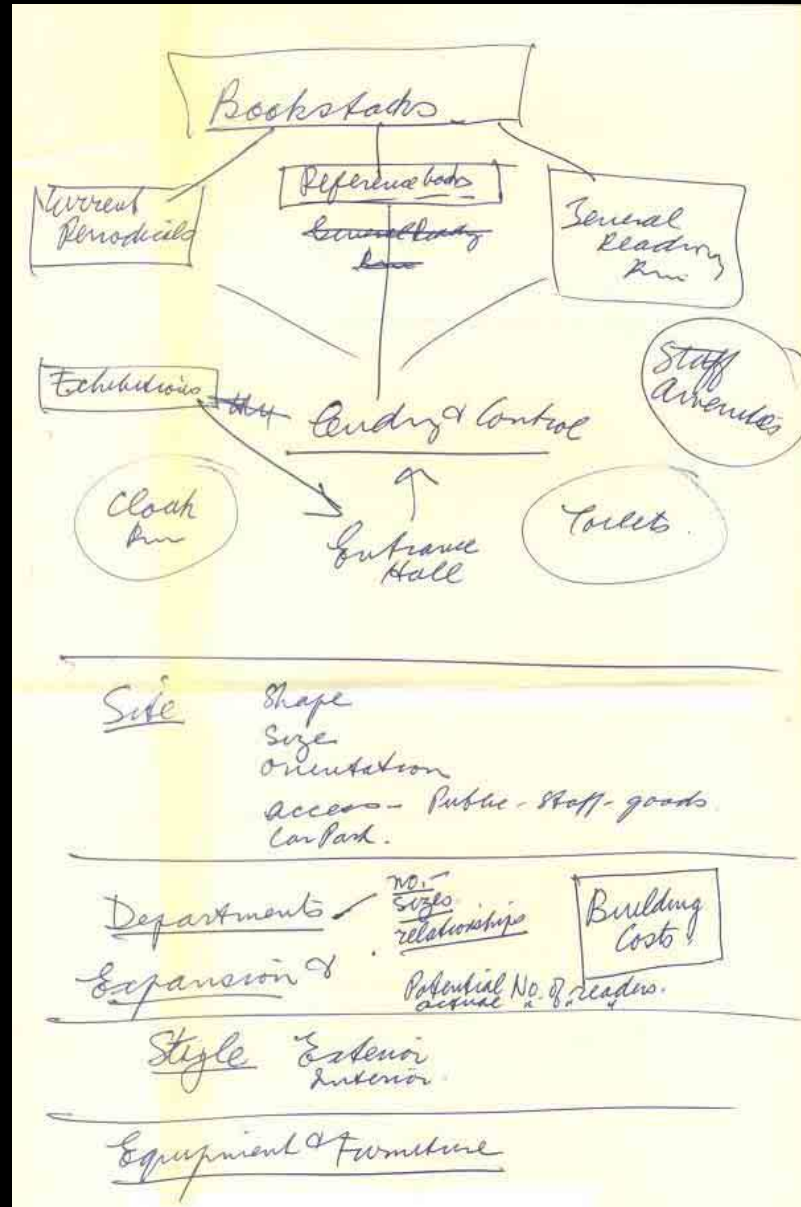 Bookstacks
Current
Periodicals
Reference books
General Reading
Room
General
Reading
Rm
Exhibitions
Lending & Control
Staff
Amenities
Cloak
Rm
Entrance
Hall
Toilets.
Site
Shape
Size
Orientation
access - Public - Staff - goods.
Car Park.
Departments
no.
Sizes
relationships
Building
Costs
Expansion &
Potential No. of readers.
actual " " "
Style Exterior
Interior.
Equipment & Furniture